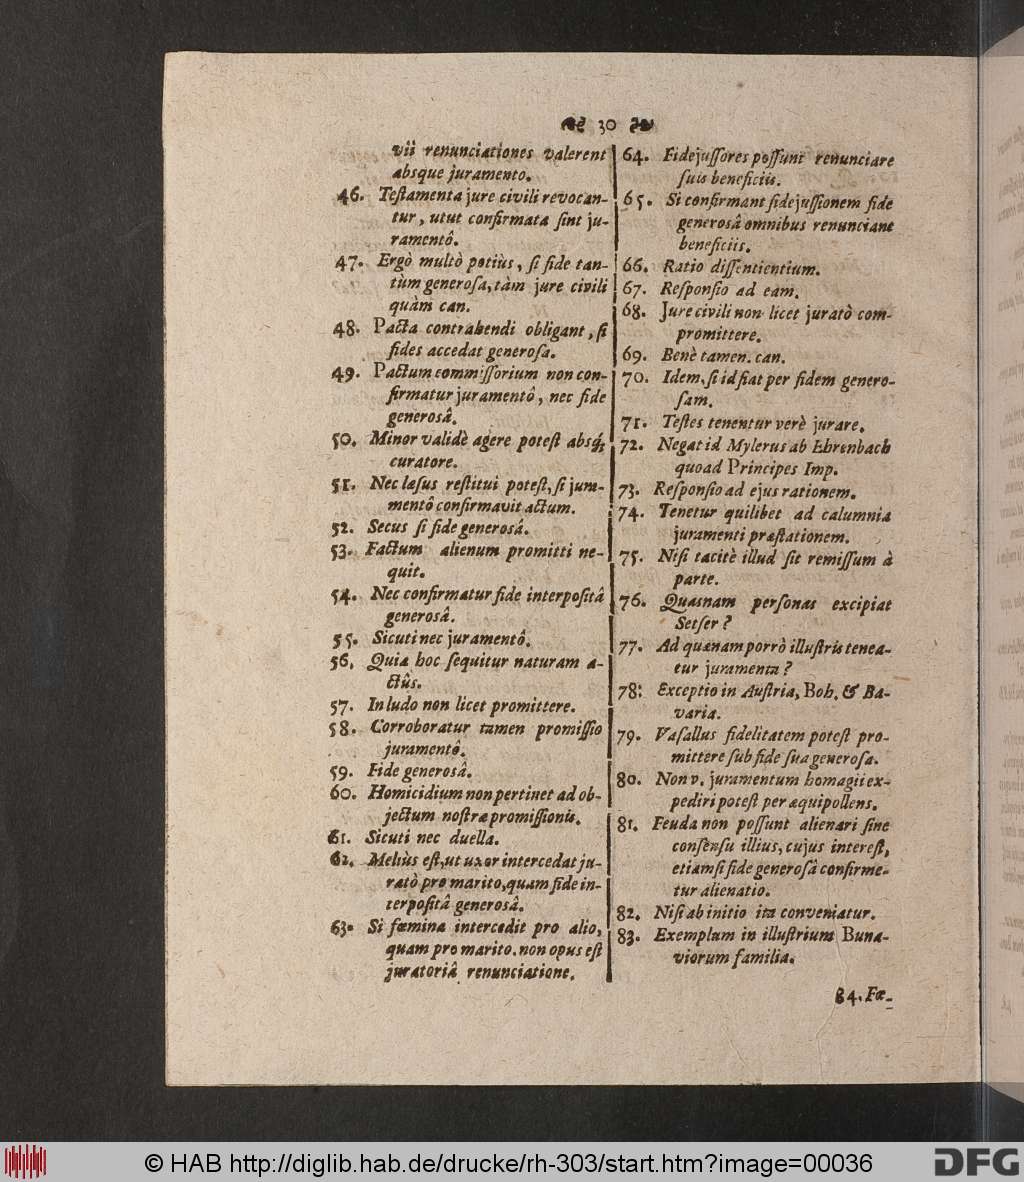 30
vii renunciationes valerent
absque juramento.
46. Teſtamenta jure civili revocan-
tur, utut confirmata ſint ju-
ramentô.
47. Ergò multò potiùs, ſi fide tan-
tùm generoſa, tàm jure civili
quàm can.
48. Pacta contrahendi obligant, ſi
fides accedat generoſa.
49. Pactum commiſſorium non con-
firmatur juramentô, nec fide
generosâ.
50. Minor validè agere poteſt absq́;
curatore.
51. Nec læſus reſtitui poteſt, ſi jura-
mentô confirmavit actum.
52. Secus ſi fide generosâ.
53. Factum alienum promitti ne-
quit.
54. Nec confirmatur fide interpoſitâ
generosâ.
55. Sicuti nec juramentô.
56. Quia hoc ſequitur naturam a-
ctûs.
57. In ludo non licet promittere.
58. Corroboratur tamen promiſſio
juramentô.
59. Fide generosâ.
60. Homicidium non pertinet ad ob-
jectum noſtræ promiſſionis.
61. Sicuti nec duella.
62. Meliùs eſt, ut uxor intercedat ju-
ratò pro marito, quam fide in-
terpoſitâ generosâ.
63. Si fœmina intercedit pro alio,
quam pro marito. non opus eſt
juratoriâ renunciatione.
64. Fidejuſſores poſſunt renunciare
ſuis beneficiis.
65. Si confirmant fidejuſſionem fide
generosâ omnibus renunciant
beneficiis.
66. Ratio diſſentientium.
67. Reſponſio ad eam.
68. Jure civili non licet juratò com-
promittere.
69. Benè tamen. can.
70. Idem, ſi id fiat per fidem genero-
ſam.
71. Teſtes tenentur verè jurare.
72. Negat id Mylerus ab Ehrenbach
quoad Principes Imp.
73. Reſponſio ad ejus rationem.
74. Tenetur quilibet ad calumnia
juramenti præſtationem.
75. Niſi tacitè illud ſit remiſſum à
parte.
76. Quasnam perſonas excipiat
Setſer?
77. Ad quænam porrò illuſtris tenea-
tur juramenta?
78: Exceptio in Auſtria, Boh. & Ba-
varia.
79. Vaſallus fidelitatem poteſt pro-
mittere ſub fide ſua generoſa.
80. Non v. juramentum homagii ex-
pediri poteſt per æquipollens.
81. Feuda non poſſunt alienari ſine
conſenſu illius, cujus intereſt,
etiamſi fide generoſâ confirme-
tur alienatio.
82. Niſi ab initio ita conveniatur.
83. Exemplum in illuſtrium Buna-
viorum familia.
84. Fœ-
© HAB http://diglib.hab.de/drucke/rh-303/start.htm?image=00036
DFG